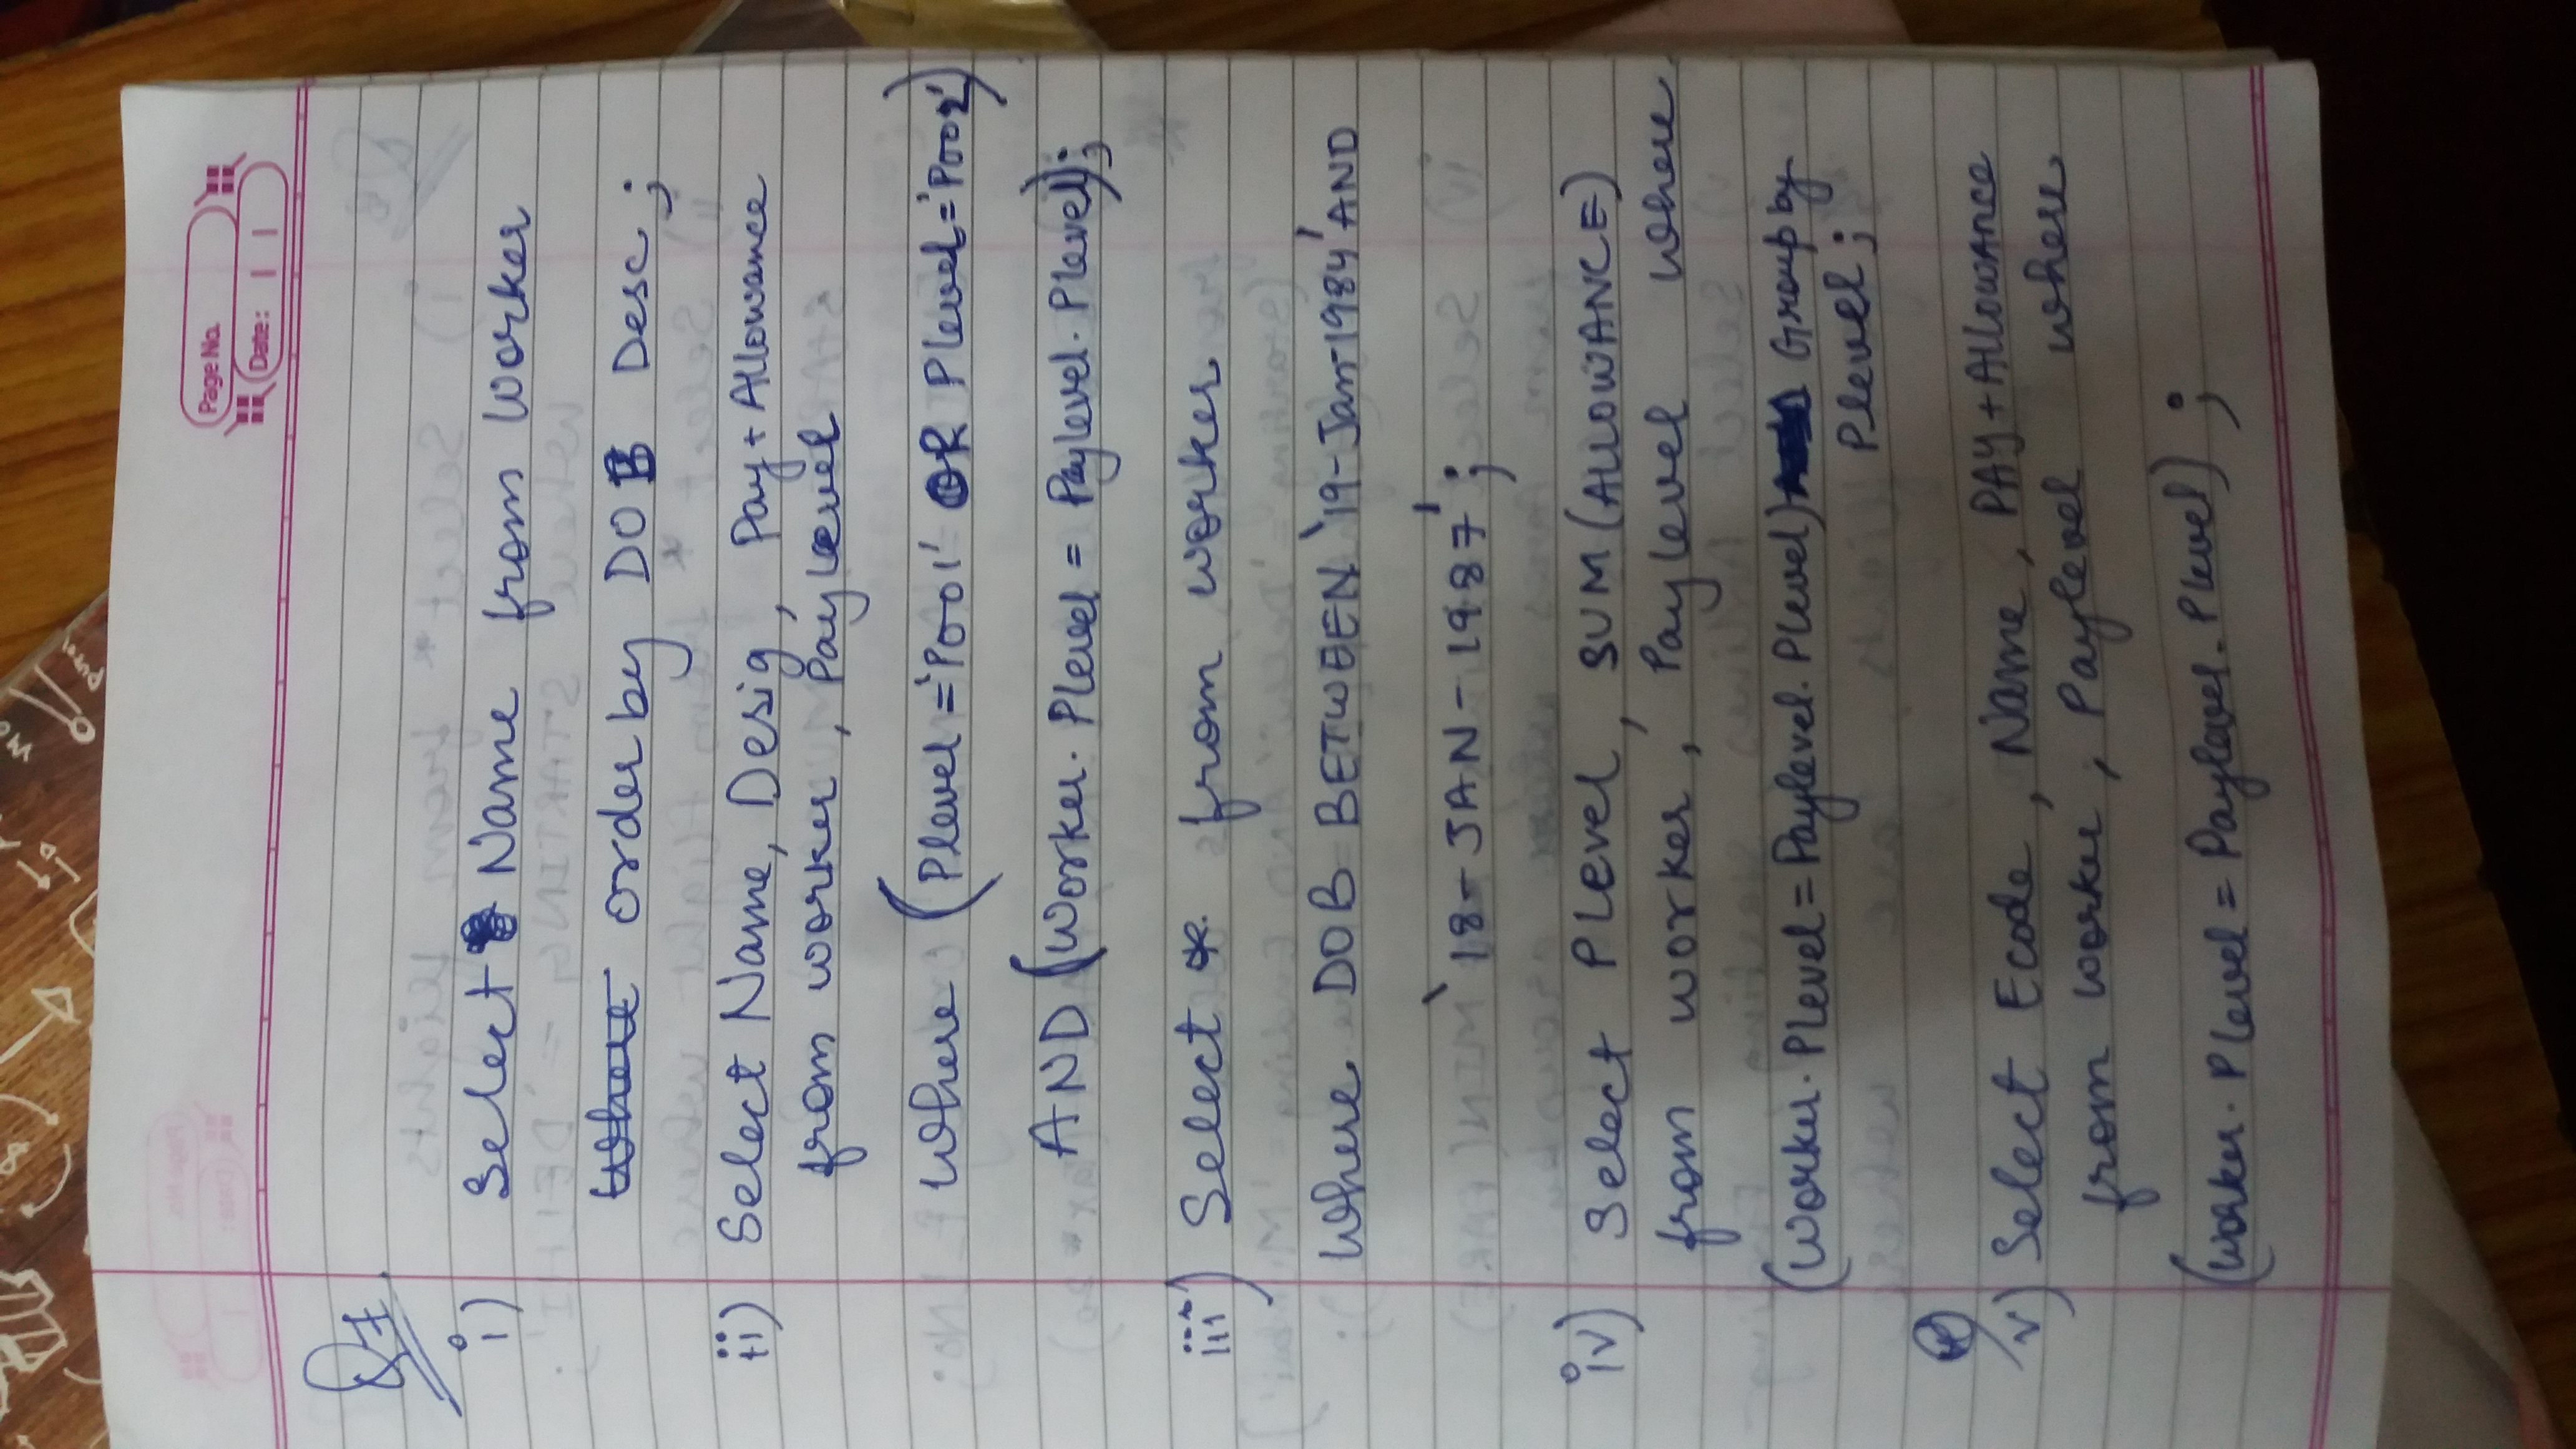 Page No.
Date:
Q7.
i) Select Name from Worker
Where order by DOB Desc;
ii) Select Name, Desig, Pay+Allowance
from worker, Paylevel
where (Plevel='P001' OR Plevel='P002')
AND (Worker.Plevel = Paylevel.Plevel);
iii) Select * from worker
Where DOB BETWEEN '19-Jan-1984' AND
'18-JAN-1987';
iv) Select PLevel, SUM(ALLOWANCE)
from worker, Paylevel where
(Worker.Plevel=Paylevel.Plevel) Group by
Plevel;
v) Select Ecode, Name, PAY+Allowance
from worker, Paylevel where
(worker.Plevel=Paylevel.Plevel);